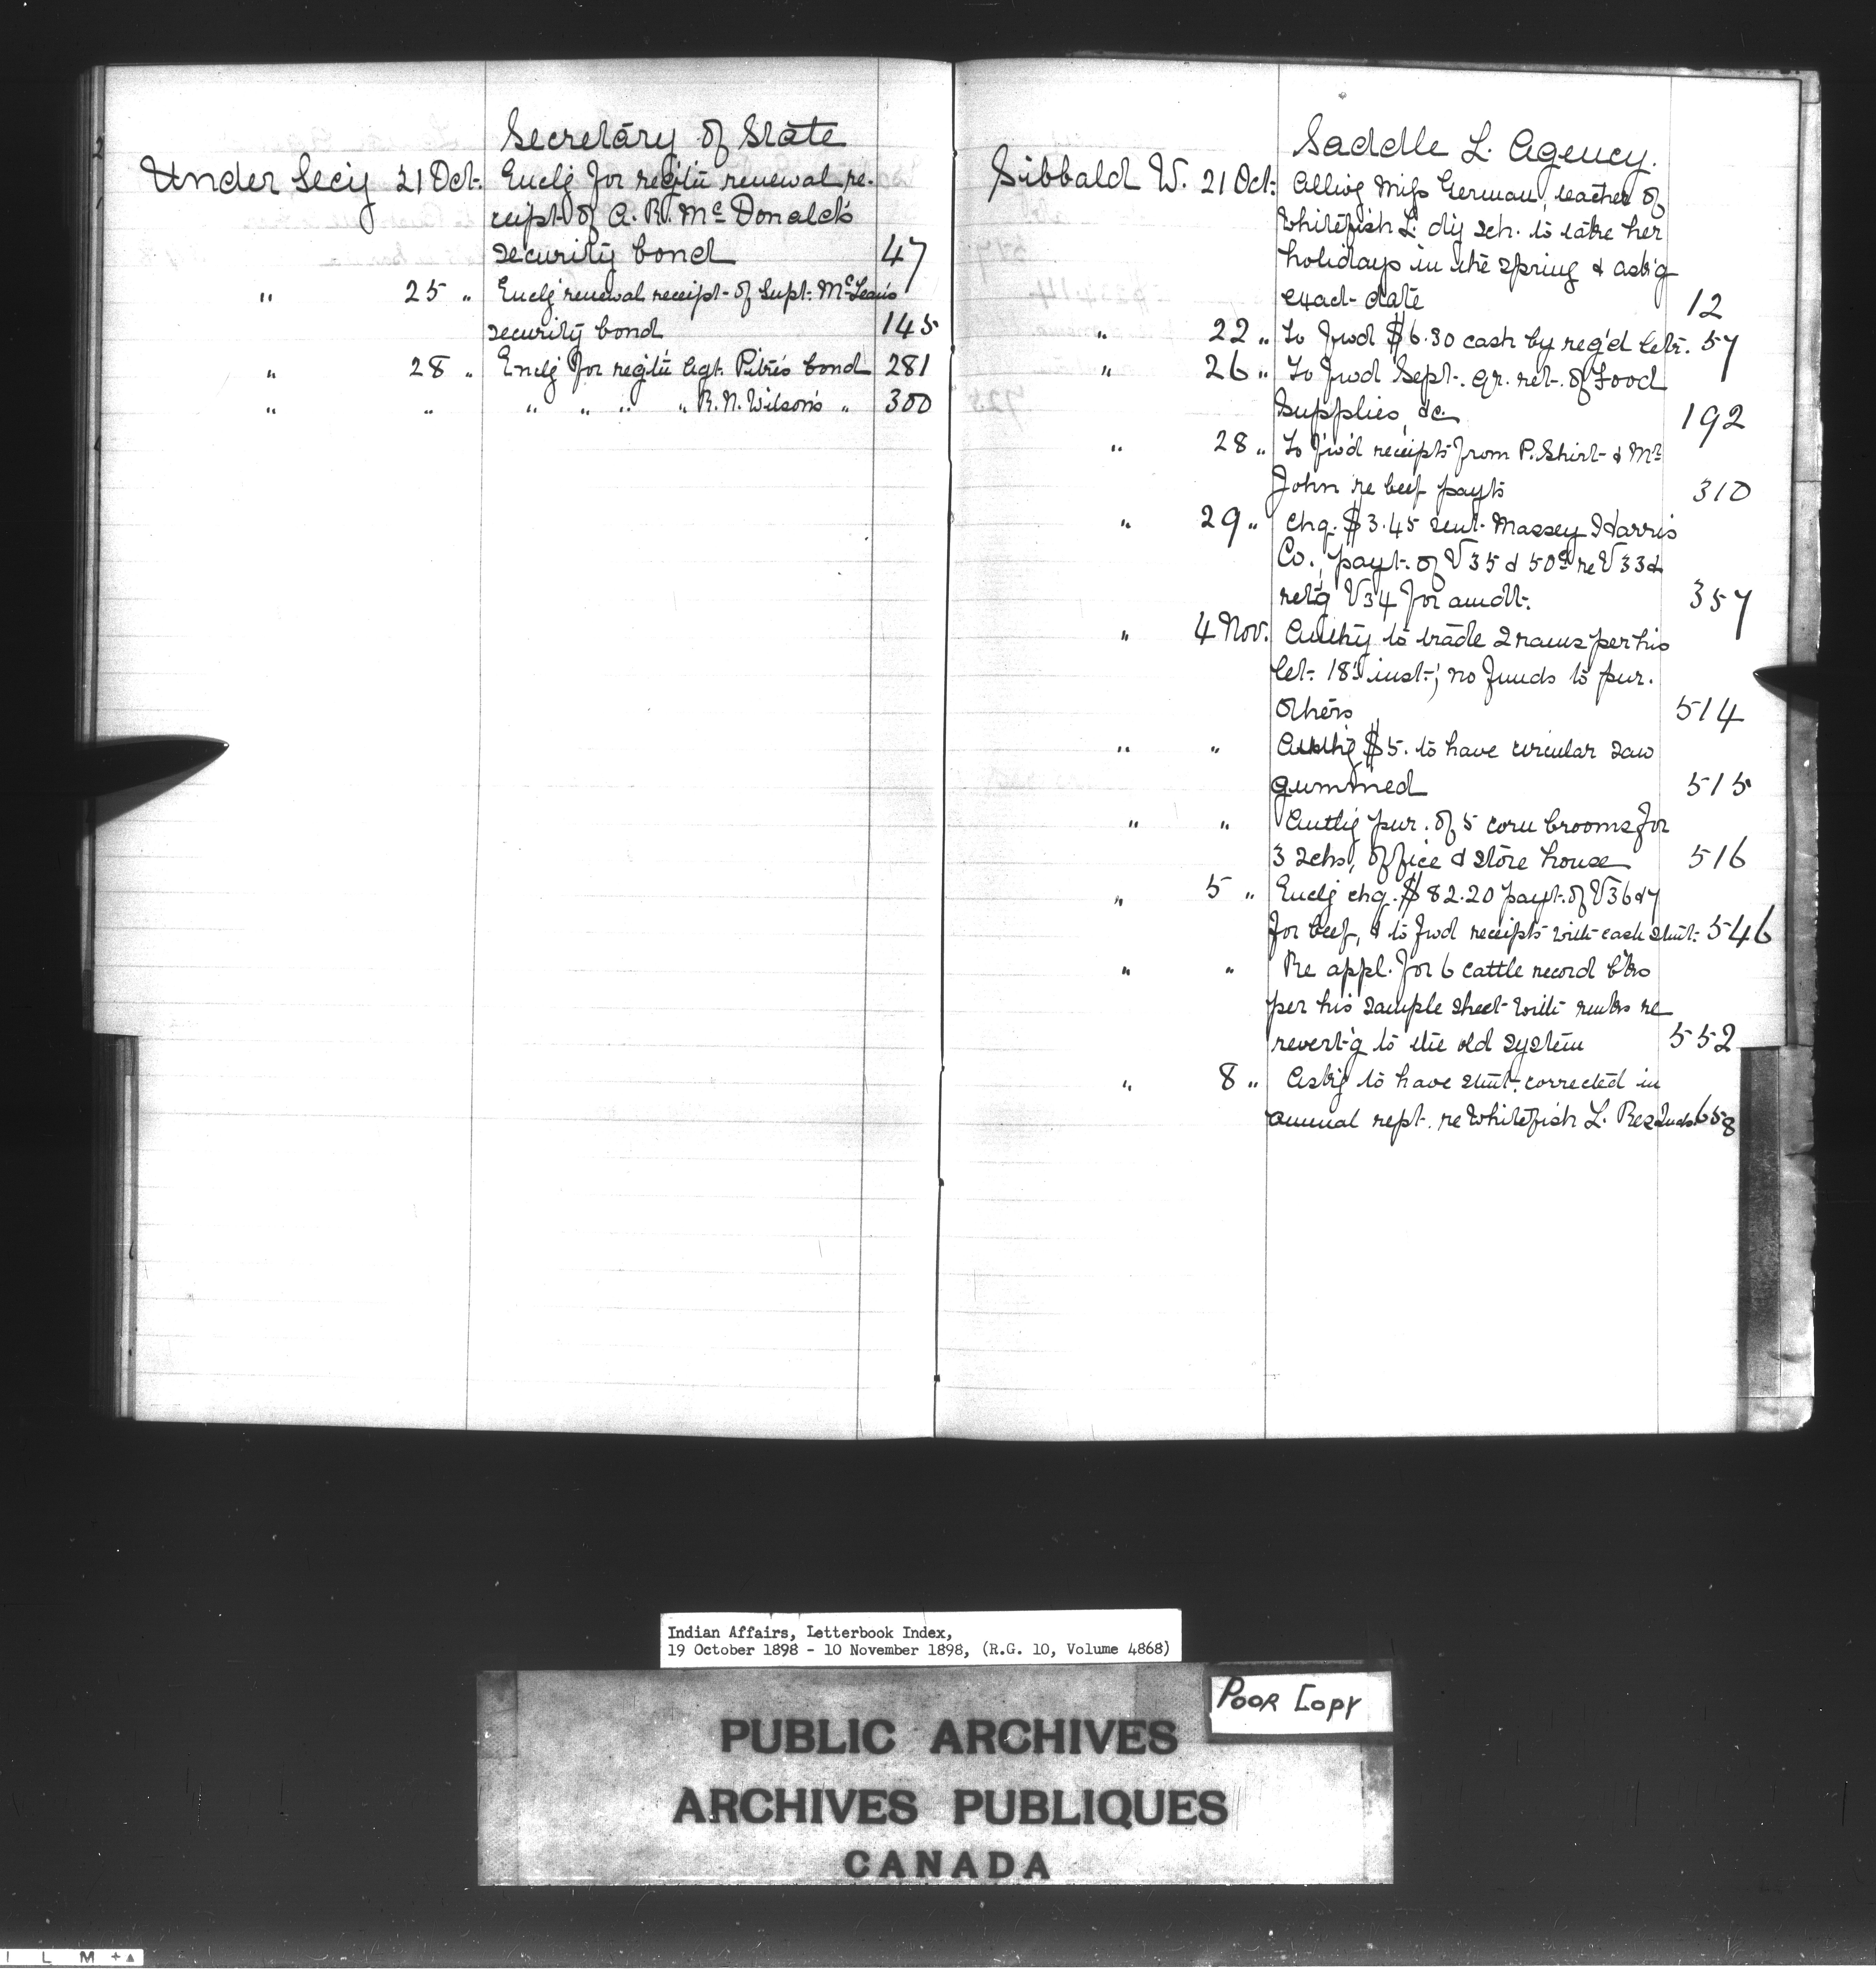 Secretary of State
Under Secy 21 Oct. Enclg for regtn renewal re-
ceipt of A. R. McDonald's
security bond 47
" 25 " Enclg renewal receipt of Supt. McLean's
security bond 145
" 28 " Enclg for regtn Agt. Pitre's bond 281
" " " " " " R. N. Wilson's " 300
Saddle L. Agency.
Sibbald W. 21 Oct. Allwg Miss German, teacher of
Whitefish L. dy sch. to take her
holidays in the spring & ask'g
exact date 12
" 22 " To fwd $6.30 cash by reg'd letr. 57
" 26 " To fwd Sept. qr. ret. of Food
Supplies, &c. 192
" 28 " To fw'd receipts from P. Shirt & Mrs
John re beef payts 310
" 29 " Chq. $3.45 sent Massey Harris
Co., payt. of V35 & 50c re V33 &
ret'g V34 for amdt. 357
" 4 Nov. Authy to trade 2 rams per his
let. 18th inst; no funds to pur.
others 514
" " Authg $5. to have circular saw
gummed 515
" " Authg pur. of 5 corn brooms for
3 schs, office & store house 516
" 5 " Enclg chq. $82.20 payt. of V36 & 7
for beef, & to fwd receipts with cash stmt. 546
" " Re appl. for 6 cattle record bks
per his sample sheet with rmks re
revert'g to the old system 552
" 8 " Askg to have stmt. corrected in
annual rept. re Whitefish L. Res 658
Indian Affairs, Letterbook Index,
19 October 1898 - 10 November 1898, (R.G. 10, Volume 4868)
Poor Copy
PUBLIC ARCHIVES
ARCHIVES PUBLIQUES
CANADA
L M +▲